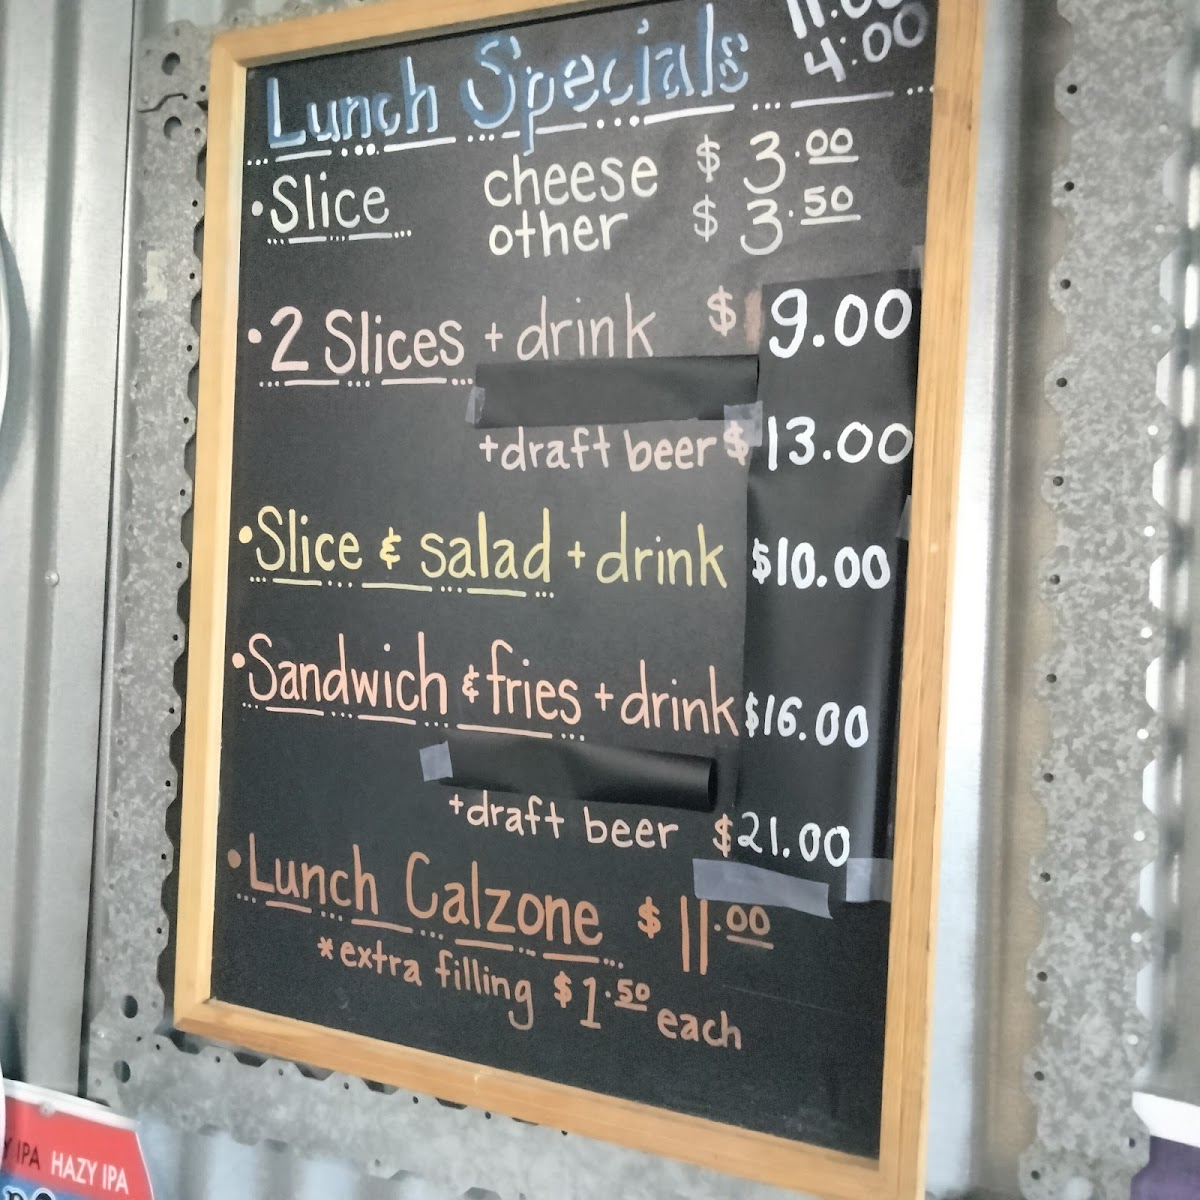 Lunch Specials
4:00
• Slice cheese $ 3.00
other $ 3.50
• 2 Slices + drink $ 9.00
+draft beer $ 13.00
• Slice & salad + drink $10.00
• Sandwich & fries + drink $16.00
+draft beer $21.00
• Lunch Calzone $ 11.00
* extra filling $1.50 each
IPA HAZY IPA